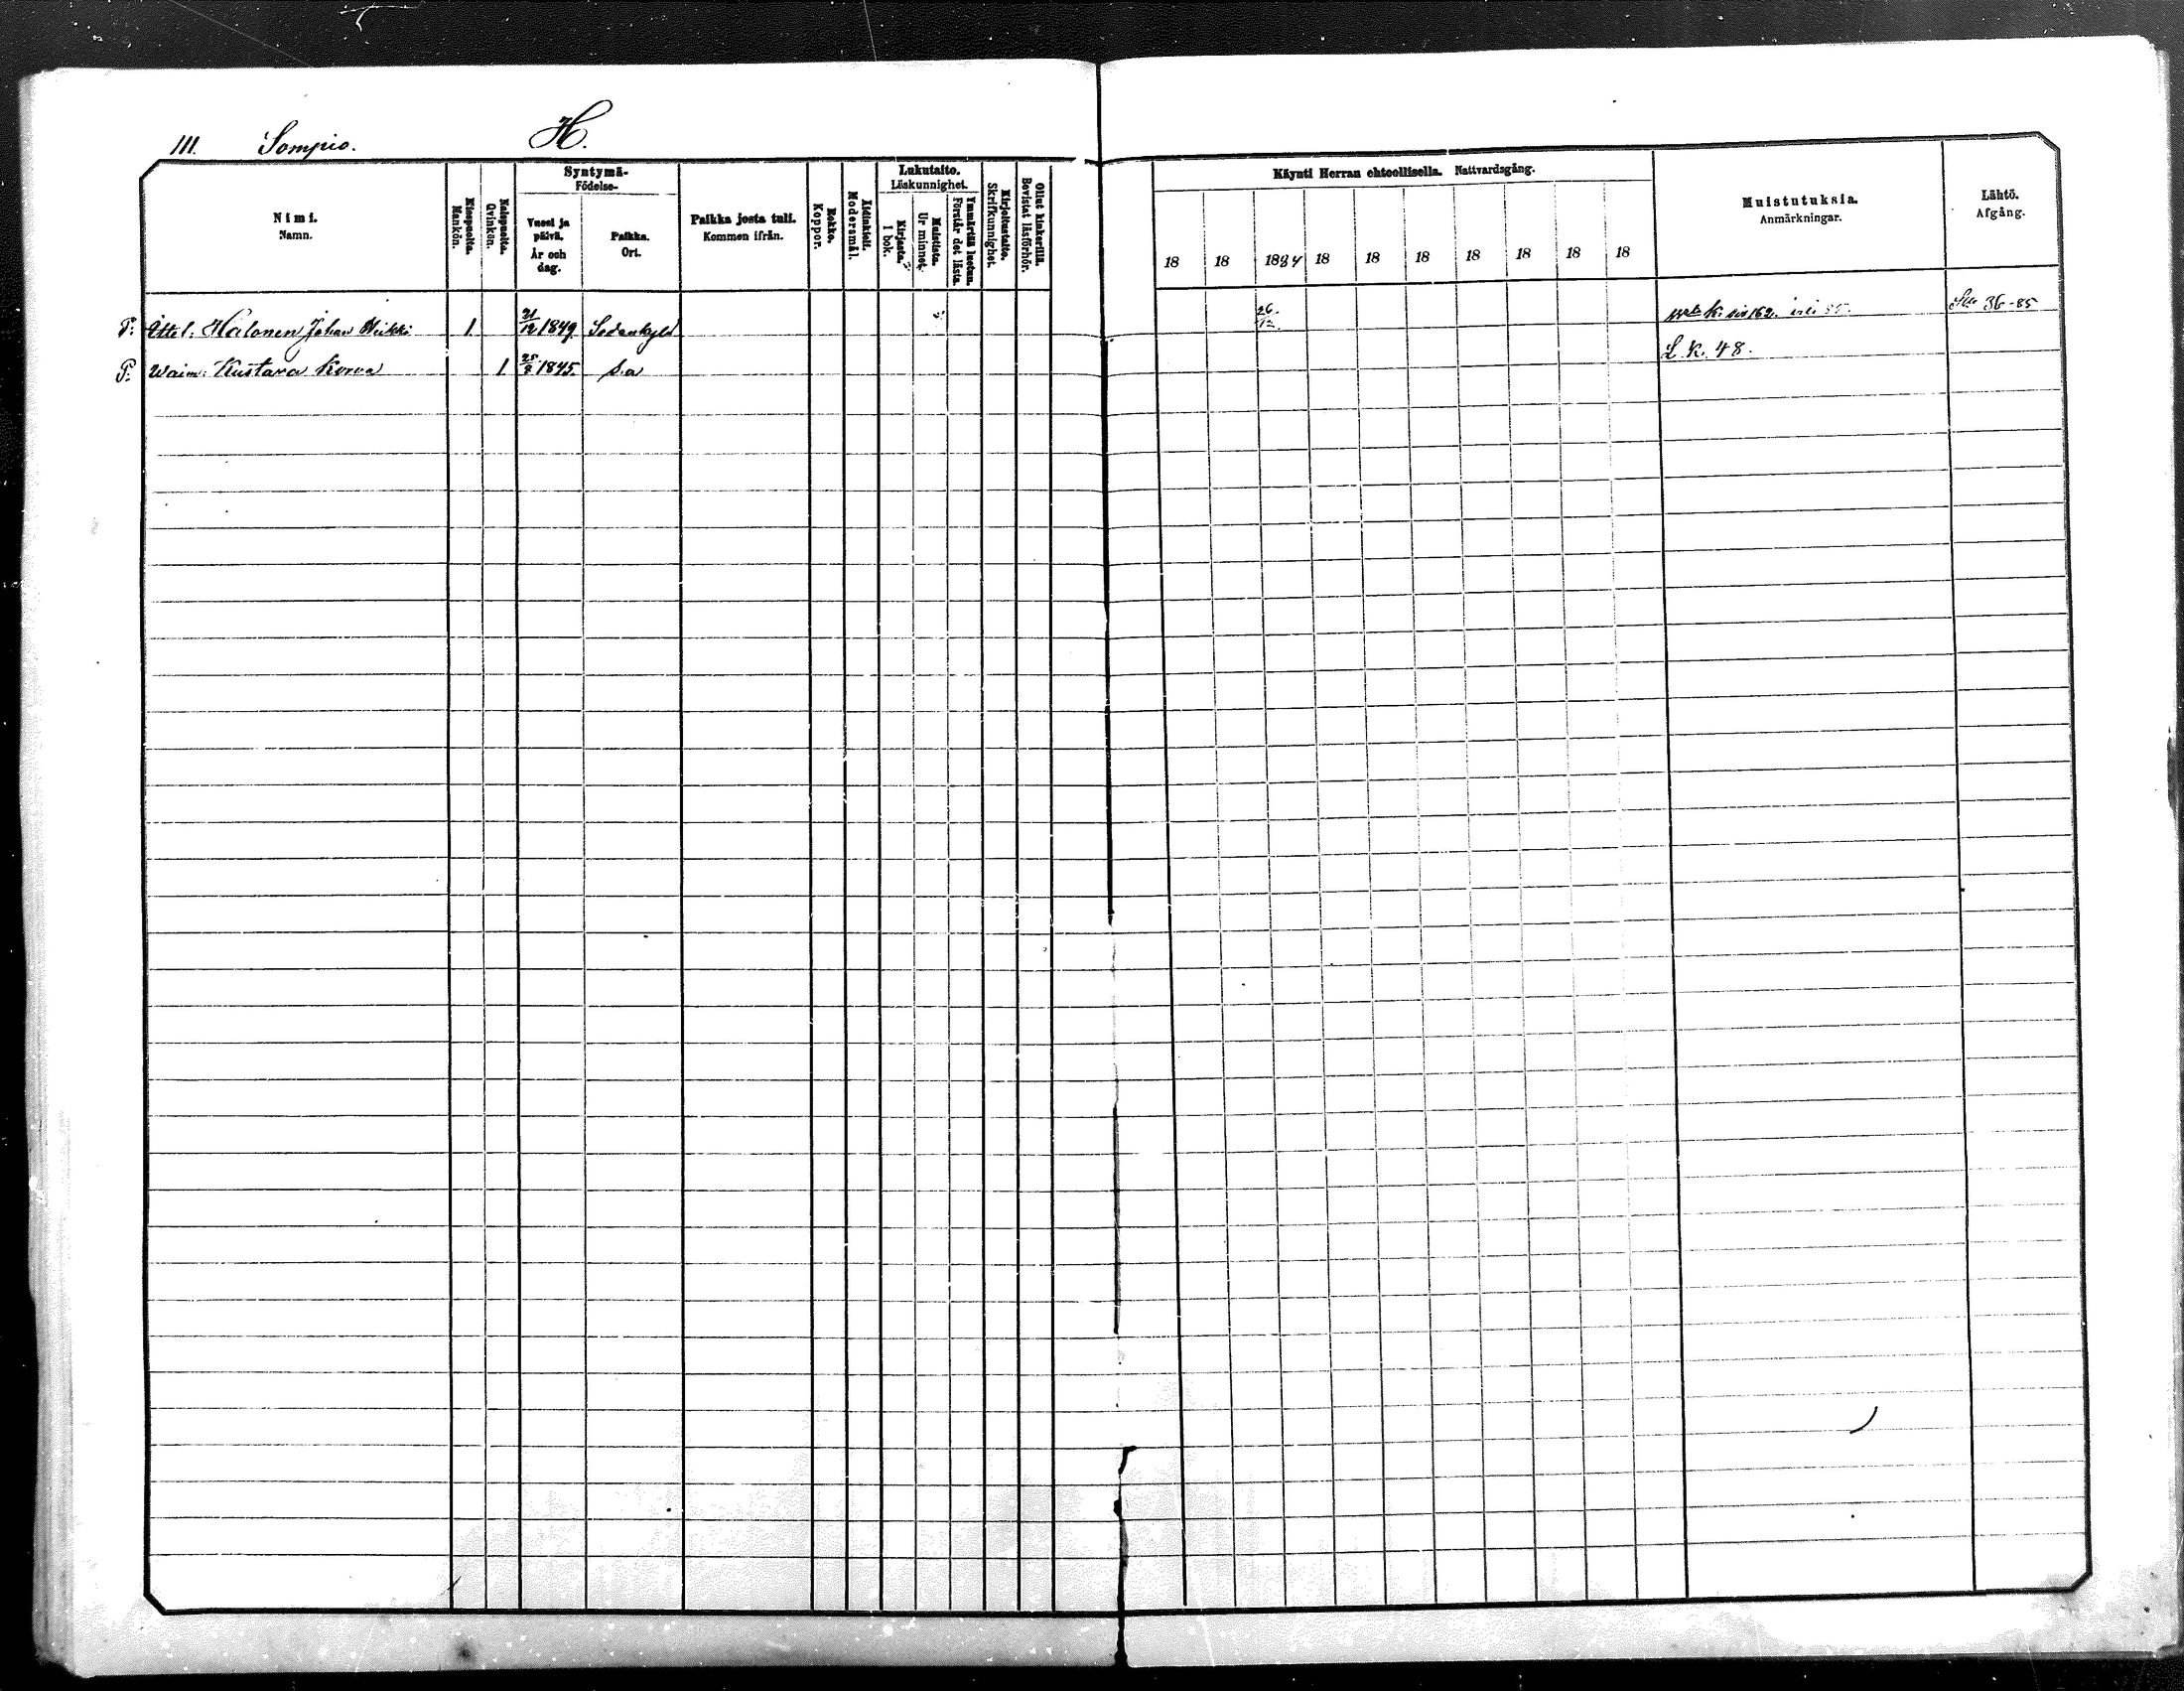 111. Sompio. H.
Nimi.
Namn.
Miespuolta.
Mankön.
Naispuolta.
Qvinkön.
Syntymä-
Födelse-
Vuosi ja
päivä.
År och
dag.
Paikka.
Ort.
Paikka josta tuli.
Kommen ifrån.
Rokko.
Koppor.
Äidinkieli.
Modersmål.
Lukutaito.
Läskunnighet.
Kirjasta.
I bok.
Muistista.
Ur minnet.
Ymmärtää luetun.
Förstår det lästa.
Kirjoitustaito.
Skrifkunnighet.
Ollut kinkerillä.
Bevistat läsförhör.
Käynti Herran ehtoollisella. Nattvardsgång.
18 18 1884 18 18 18 18 18 18 18
Muistutuksia.
Anmärkningar.
Lähtö.
Afgång.
P. Ittel: Halonen Johan Heikki 1 21/12 1849. Sodankylä 26/12 162. 36-85
P. Waim: Kustava Korva 1 25/ 1845. S.a L. K. 48.